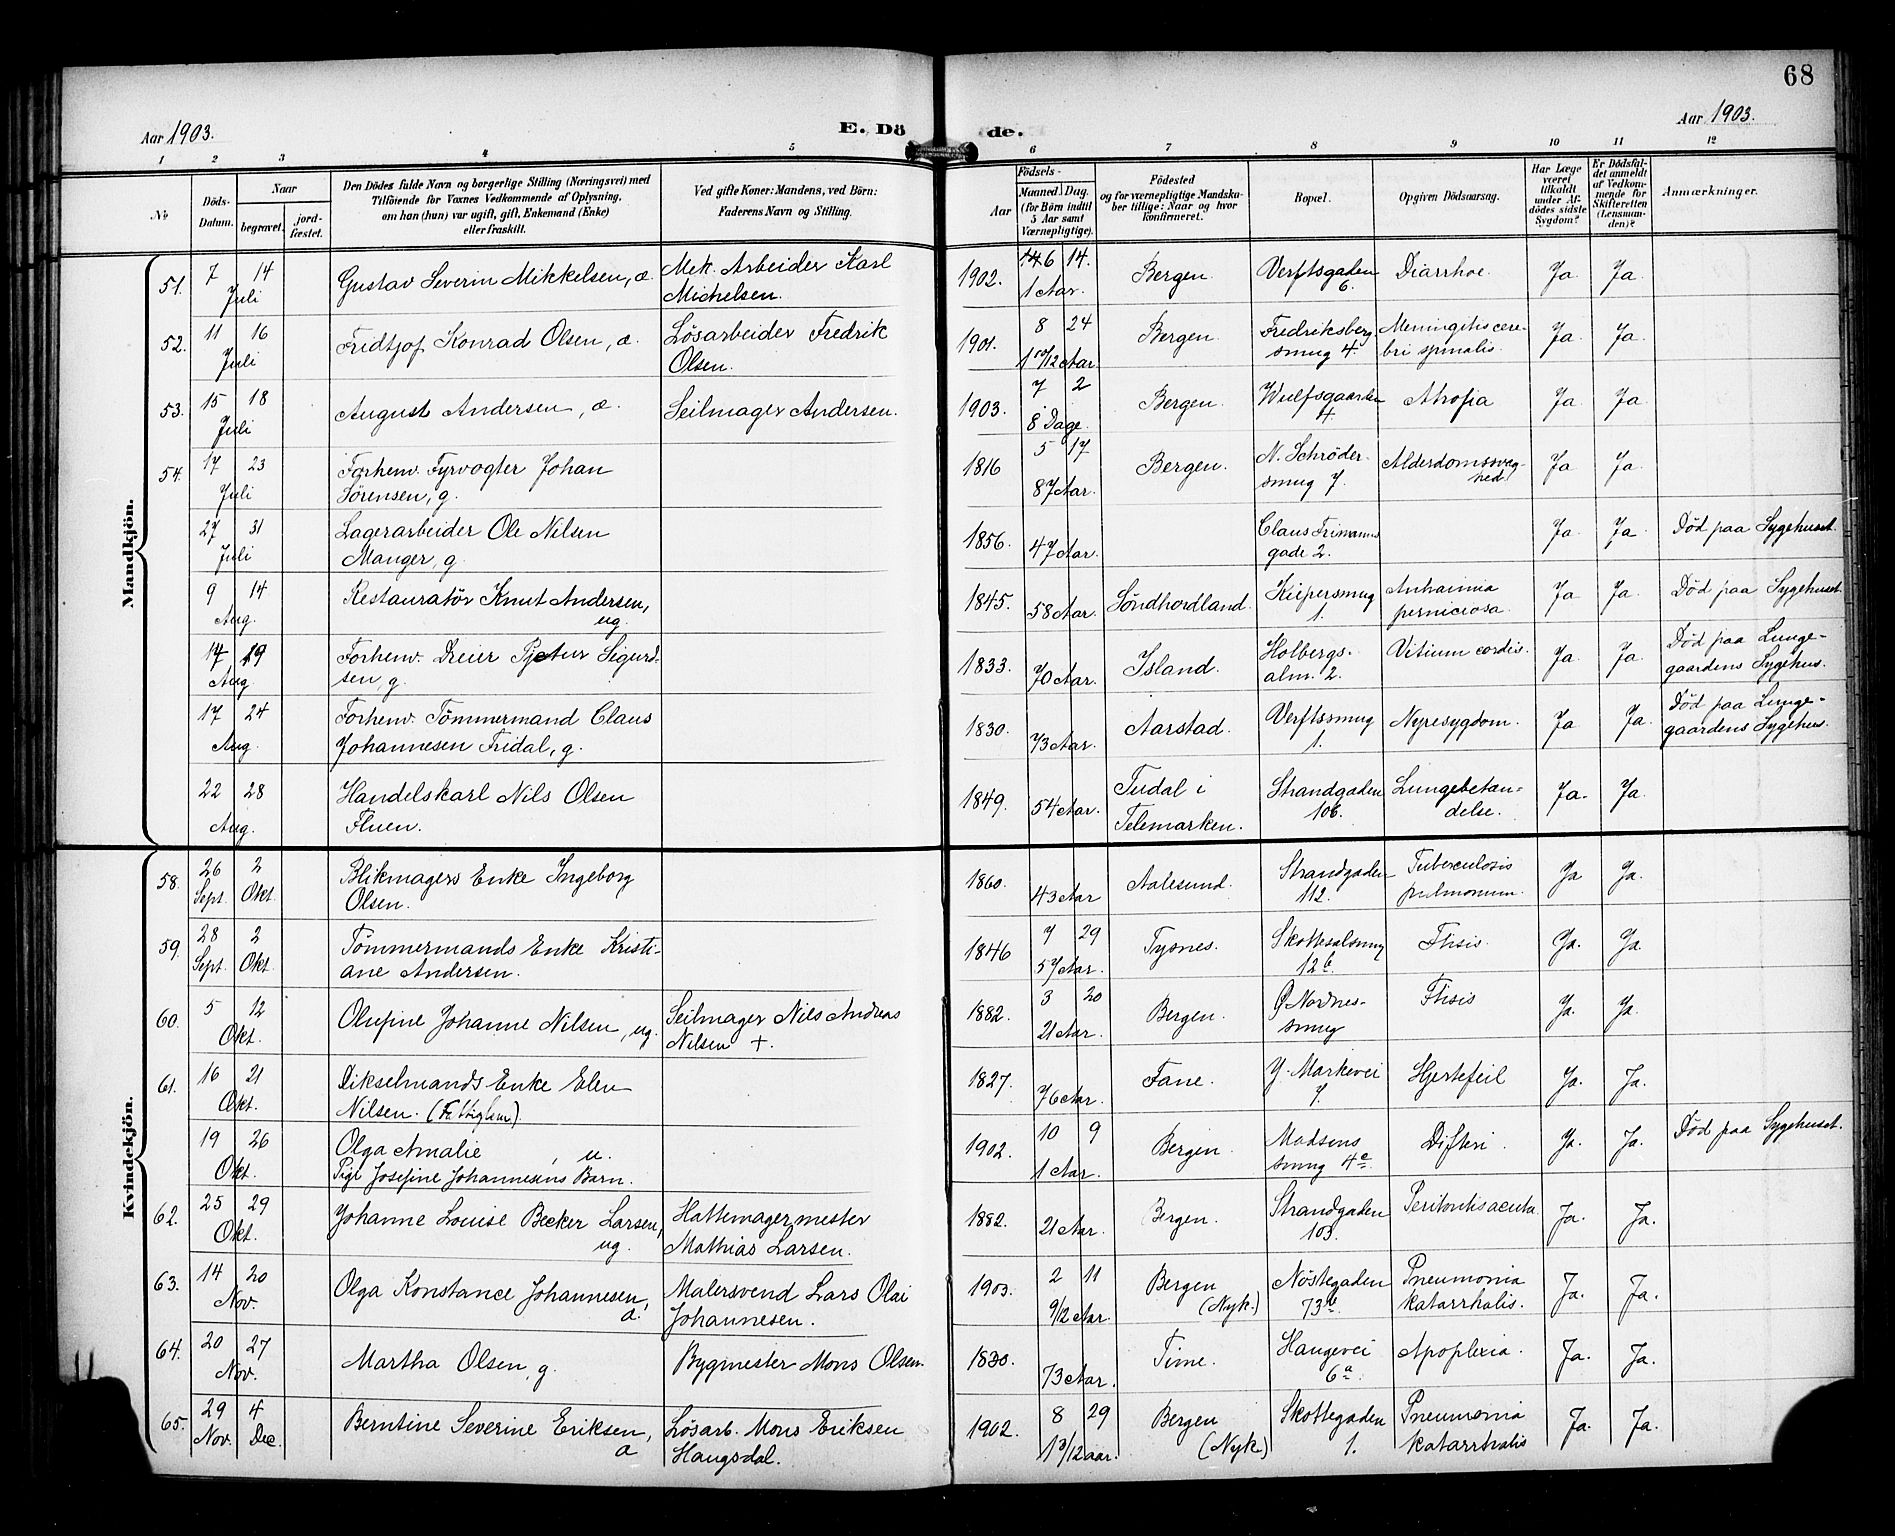 68
Aar 1903.
E. Dö de.
Aar 1903.
1 2 3 4 5 6 7 8 9 10 11 12
No
Döds-Datum.
Naar
begravet.
jord-fæstet.
Den Dödes fulde Navn og borgerlige Stilling (Næringsvei) med
Tilföiende for Voxnes Vedkommende af Oplysning,
om han (hun) var ugift, gift, Enkemand (Enke)
eller fraskilt.
Ved gifte Koner: Mandens, ved Börn:
Faderens Navn og Stilling.
Födsels-
Aar
Maaned. Dag.
(for Börn indtil
5 Aar samt
Værnepligtige).
Födested
og for værnepligtige Mandska-
ber tillige: Naar og hvor
konfirmeret.
Bopæl.
Opgiven Dödsaarsag.
Har Læge
været
tilkaldt
under Af-
dödes sidste
Sygdom?
Er Dödsfal-
det anmeldt
af Vedkom-
mende for
Skifteretten
(Lensman-
den)?
Anmærkninger.
Mandkjön.
51. 7 14 Gustav Severin Mikkelsen, æ. Mek. Arbeider Karl 1902. 6 14. Bergen Verftsgaden Diarrhoe. Ja Ja.
Juli Michelsen. 1 Aar. 6.
52. 11 16 Fridtjof Konrad Olsen, æ. Lösarbeider Fredrik 1901. 8 24 Bergen. Fredriksberg Meningitis cere- Ja Ja.
Juli Olsen. 1 10/12 Aar. smug 4. bri spinalis.
53. 15 18 August Andersen, æ. Seilmager Andersen. 1903. 7 2 Bergen. Wulfsgaarden Atrofia Ja Ja
Juli 8 Dage. 4.
54. 17 23 Forhenv. Fyrvogter Johan 1816 5 17 Bergen. N. Schröder- Alderdomssvag- Ja Ja.
Juli Sörensen, g. 87 Aar. smug 7. hed.
27 31 Lagerarbeider Ole Nilsen 1856. Claus Frimanns Ja Ja Död paa Sygehuset.
Juli Manger, g. 47 Aar. gade 2.
9 14 Restauratör Knut Andersen, 1845. Söndhordland. Kiepersmug Ja Ja. Död paa Sygehuset.
Aug. ug. 58 Aar. 1. perniciosa.
14 19 Forhenv. Dreier Pjetur Sigurd- 1833. Island. Holbergs- Vitium cordis. Ja Ja. Död paa Lunge-
Aug sen, g. 70 Aar. alm. 2. gaardens Sygehus.
17 24 Forhenv. Tömmermand Claus 1830. Aarstad. Verftssmug Nyresygdom. Ja Ja. Död paa Lunge-
Aug. Johannesen Fridal, g. 73 Aar. 1. gaardens Sygehus.
22 28 Handelskarl Nils Olsen 1849. Tudal i Strandgaden Lungebetæn- Ja. Ja.
Aug. Fluen. 54 Aar. Telemarken. 106. delse.
Kvindekjön.
58. 26 2 Blikmagers Enke Ingeborg 1860. Aalesund. Strandgaden Tuberculosis Ja Ja.
Sept. Okt. Olsen. 43 Aar 112. pulmonum.
59. 28 2 Tömmermands Enke Kristi- 1846 7 29 Tysnes. Skottesalsmug Ftisis. Ja. Ja
Sept. Okt. ane Andersen. 57 Aar. 12 b.
60. 5 12 Olufine Johanne Nilsen, ug. Seilmager Nils Andreas 1882. 3 20 Bergen. Ø Nordnes- Ftisis Ja. Ja.
Okt. Nilsen +. 21 Aar. smug
61. 16 21 Dikselmands Enke Elen 1827. Fane. Y. Markevei Hjertefeil Ja. Ja.
Okt. Nilsen. 76 Aar. 7.
19 26 Olga Amalie, u. 1902. 10 9 Bergen. Madsens Difteri Ja. Ja. Död paa Sygehuset.
Okt. Pige Josefine Johannesens Barn. 1 Aar. smug 4 c.
62. 25 29 Johanne Louise Becker Larsen, Hattemagermester 1882. Bergen. Strandgaden Peritonitis acuta. Ja. Ja.
Okt. ug. Mathias Larsen. 21 Aar. 103.
63. 14 20 Olga Konstance Johannesen, Malersvend Lars Olai 1903. 2 11 Bergen Nöstegaden Pneumonia Ja. Ja.
Nov. a. Johannesen. 9/12 Aar. (Nyk.) 73 b. katarrhalis.
64. 20 27 Martha Olsen, g. Bygmester Mons Olsen. 1830. Time. Haugevei Apoplexia. Ja. Ja.
Nov. 73 Aar. 6 a.
65. 29 4 Berntine Severine Eriksen, Lösarb. Mons Eriksen 1902. 8 29 Bergen Skottegaden Pneumonia Ja. Ja.
Nov. Dec. a Haugsdal. 1 3/12 aar. (Nyk.) 1. katarrhalis